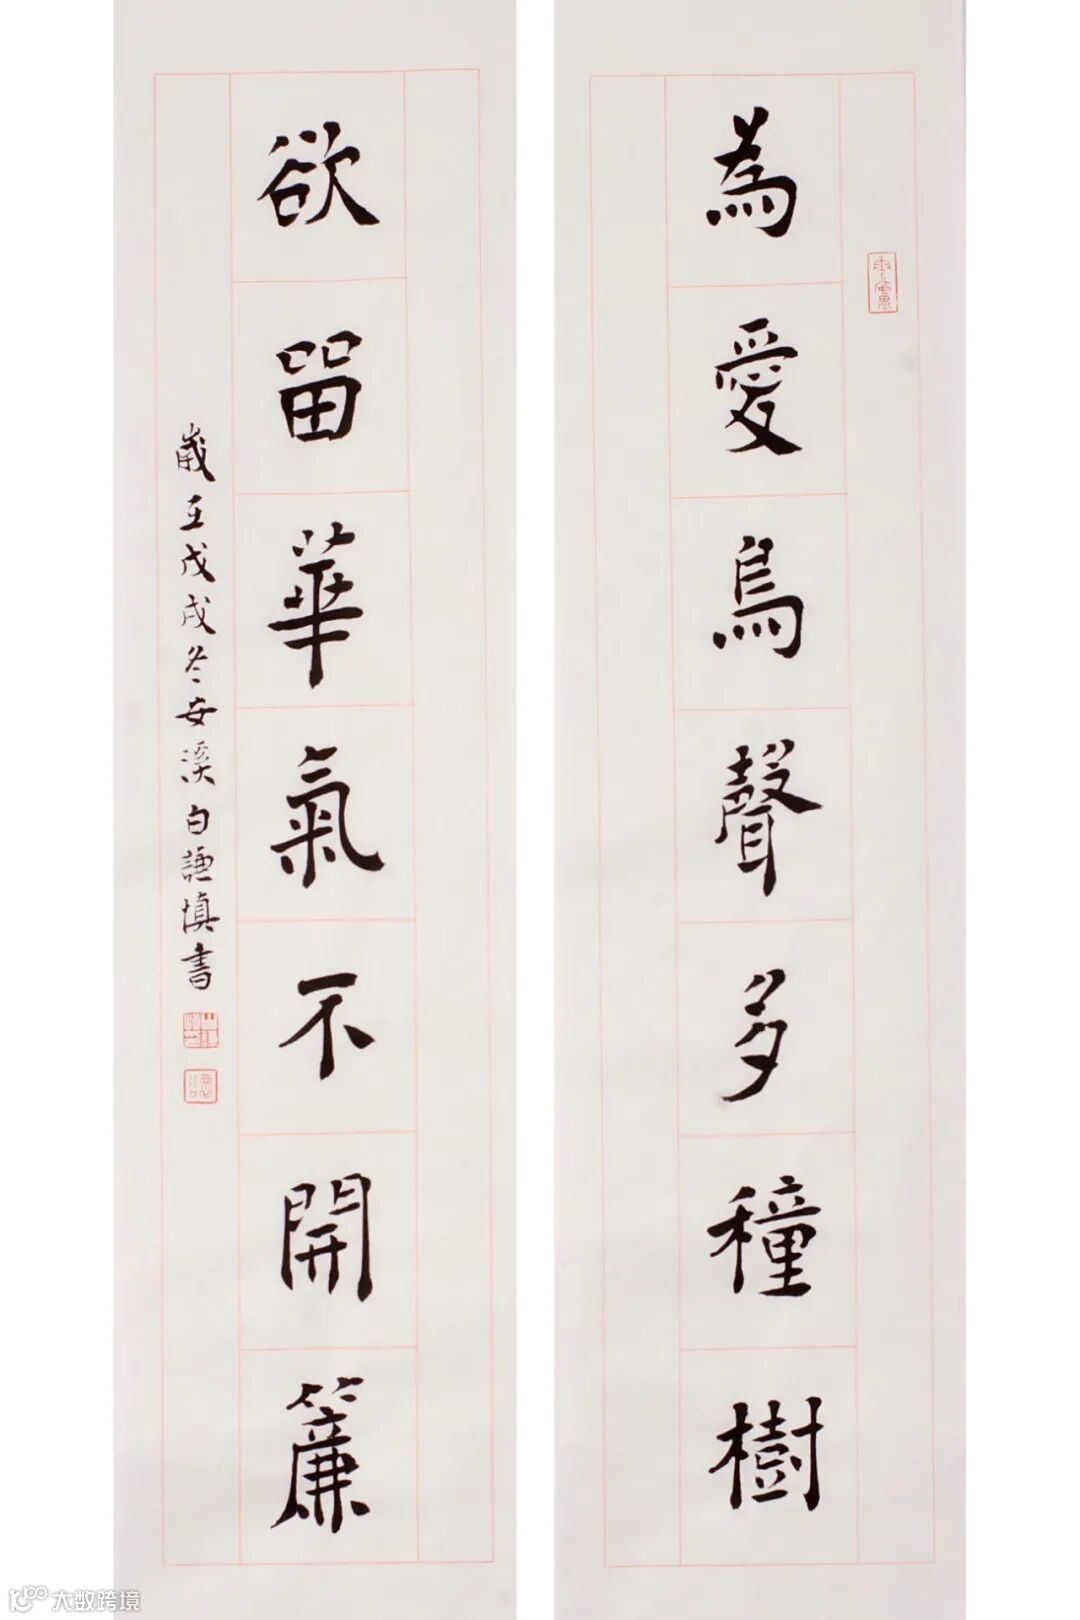 為愛鳥聲多種樹
欲留華氣不開簾
歲在戊戌冬安溪白謙慎書
大数跨境